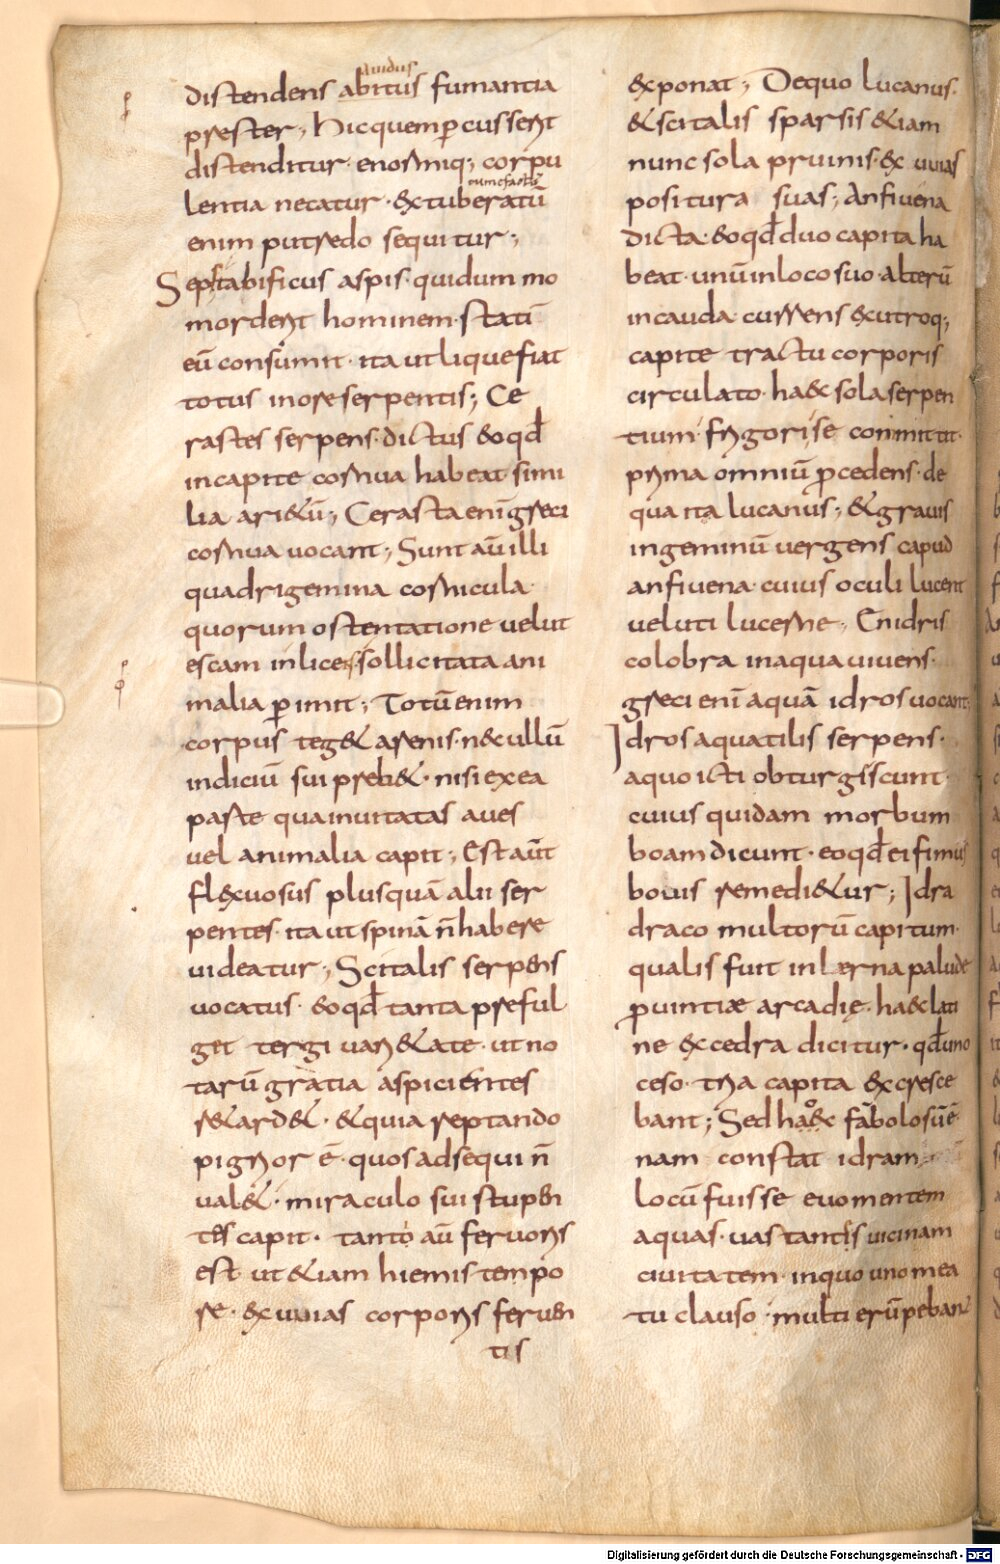 auidus
distendens abitus fumantia
prester; hic quem ꝑcusserit
distenditur enormiq; corpu
tumefactu
lentia necatur · extuberatū
enim putredo sequitur;
Seps tabificus aspis · quidum mo
morderit hominem · statī
eū consumit · ita ut liquefiat
totus in ore serpentis; Ce
rastes serpens · dictus eo qđ
in capite cornua habeat simi
lia ari&ū; Cerasta enī greci
cornua uocant; Sunt aū illi
quadrigemina cornicula ·
quorum ostentatione uelut
escam inlices sollicitata ani
malia ꝑimit; Totū enim
corpus teg& arenis · nec ullū
indiciū sui preb& · nisi ex ea
parte qua inuitatas aues
uel animalia capit; Est aūt
flexuosus plusquā alii ser
pentes · ita ut spinā n̄ habere
uideatur; Scitalis serpens
uocatus · eo qđ tanta preful
get tergi uari&ate · ut no
tarū gratia aspicientes
r&ard& · & quia reptando
pigrior ē · quos adsequi n̄
ual& · miraculo sui stupen
tes capit · tanto aū feruoris
est ut &iam hiemis tempo
re · exuuias corporis feruen
tis
exponat; De quo lucanus ·
& scitalis sparsis &iam
nunc sola pruinis · exuuias
positura suas; Anfiuena
dicta · eo qđ duo capita ha
beat · unū in loco suo · alterū
in cauda · currens ex utroq;
capite tractu corporis
circulato · haec sola serpen
tium frigori se committit ·
prima omniū ꝓcedens · de
qua ita lucanus; & grauis
in geminū uergens capud
anfiuena · cuius oculi lucent
ueluti lucerne; Enidris
colobra in aqua uiuens ·
greci enī aquā idros uocant;
Idros aquatilis serpens ·
a quo icti obturgiscunt ·
cuius quidam morbum
boam dicunt · eo qđ ei fimus
bouis remedi&ur; Idra
draco multorū capitum ·
qualis fuit in lerna palude
ꝓuintiæ arcadię · haec lati
ne excedra dicitur · qđ uno
ceso · tria capita excresce
bant; Sed hoc fabolosū ē
nam constat idram
locū fuisse euomentem
aquas · uastantis uicinam
ciuitatem · in quo uno mea
tu clauso · multi erūpebant
Digitalisierung gefördert durch die Deutsche Forschungsgemeinschaft - DFG